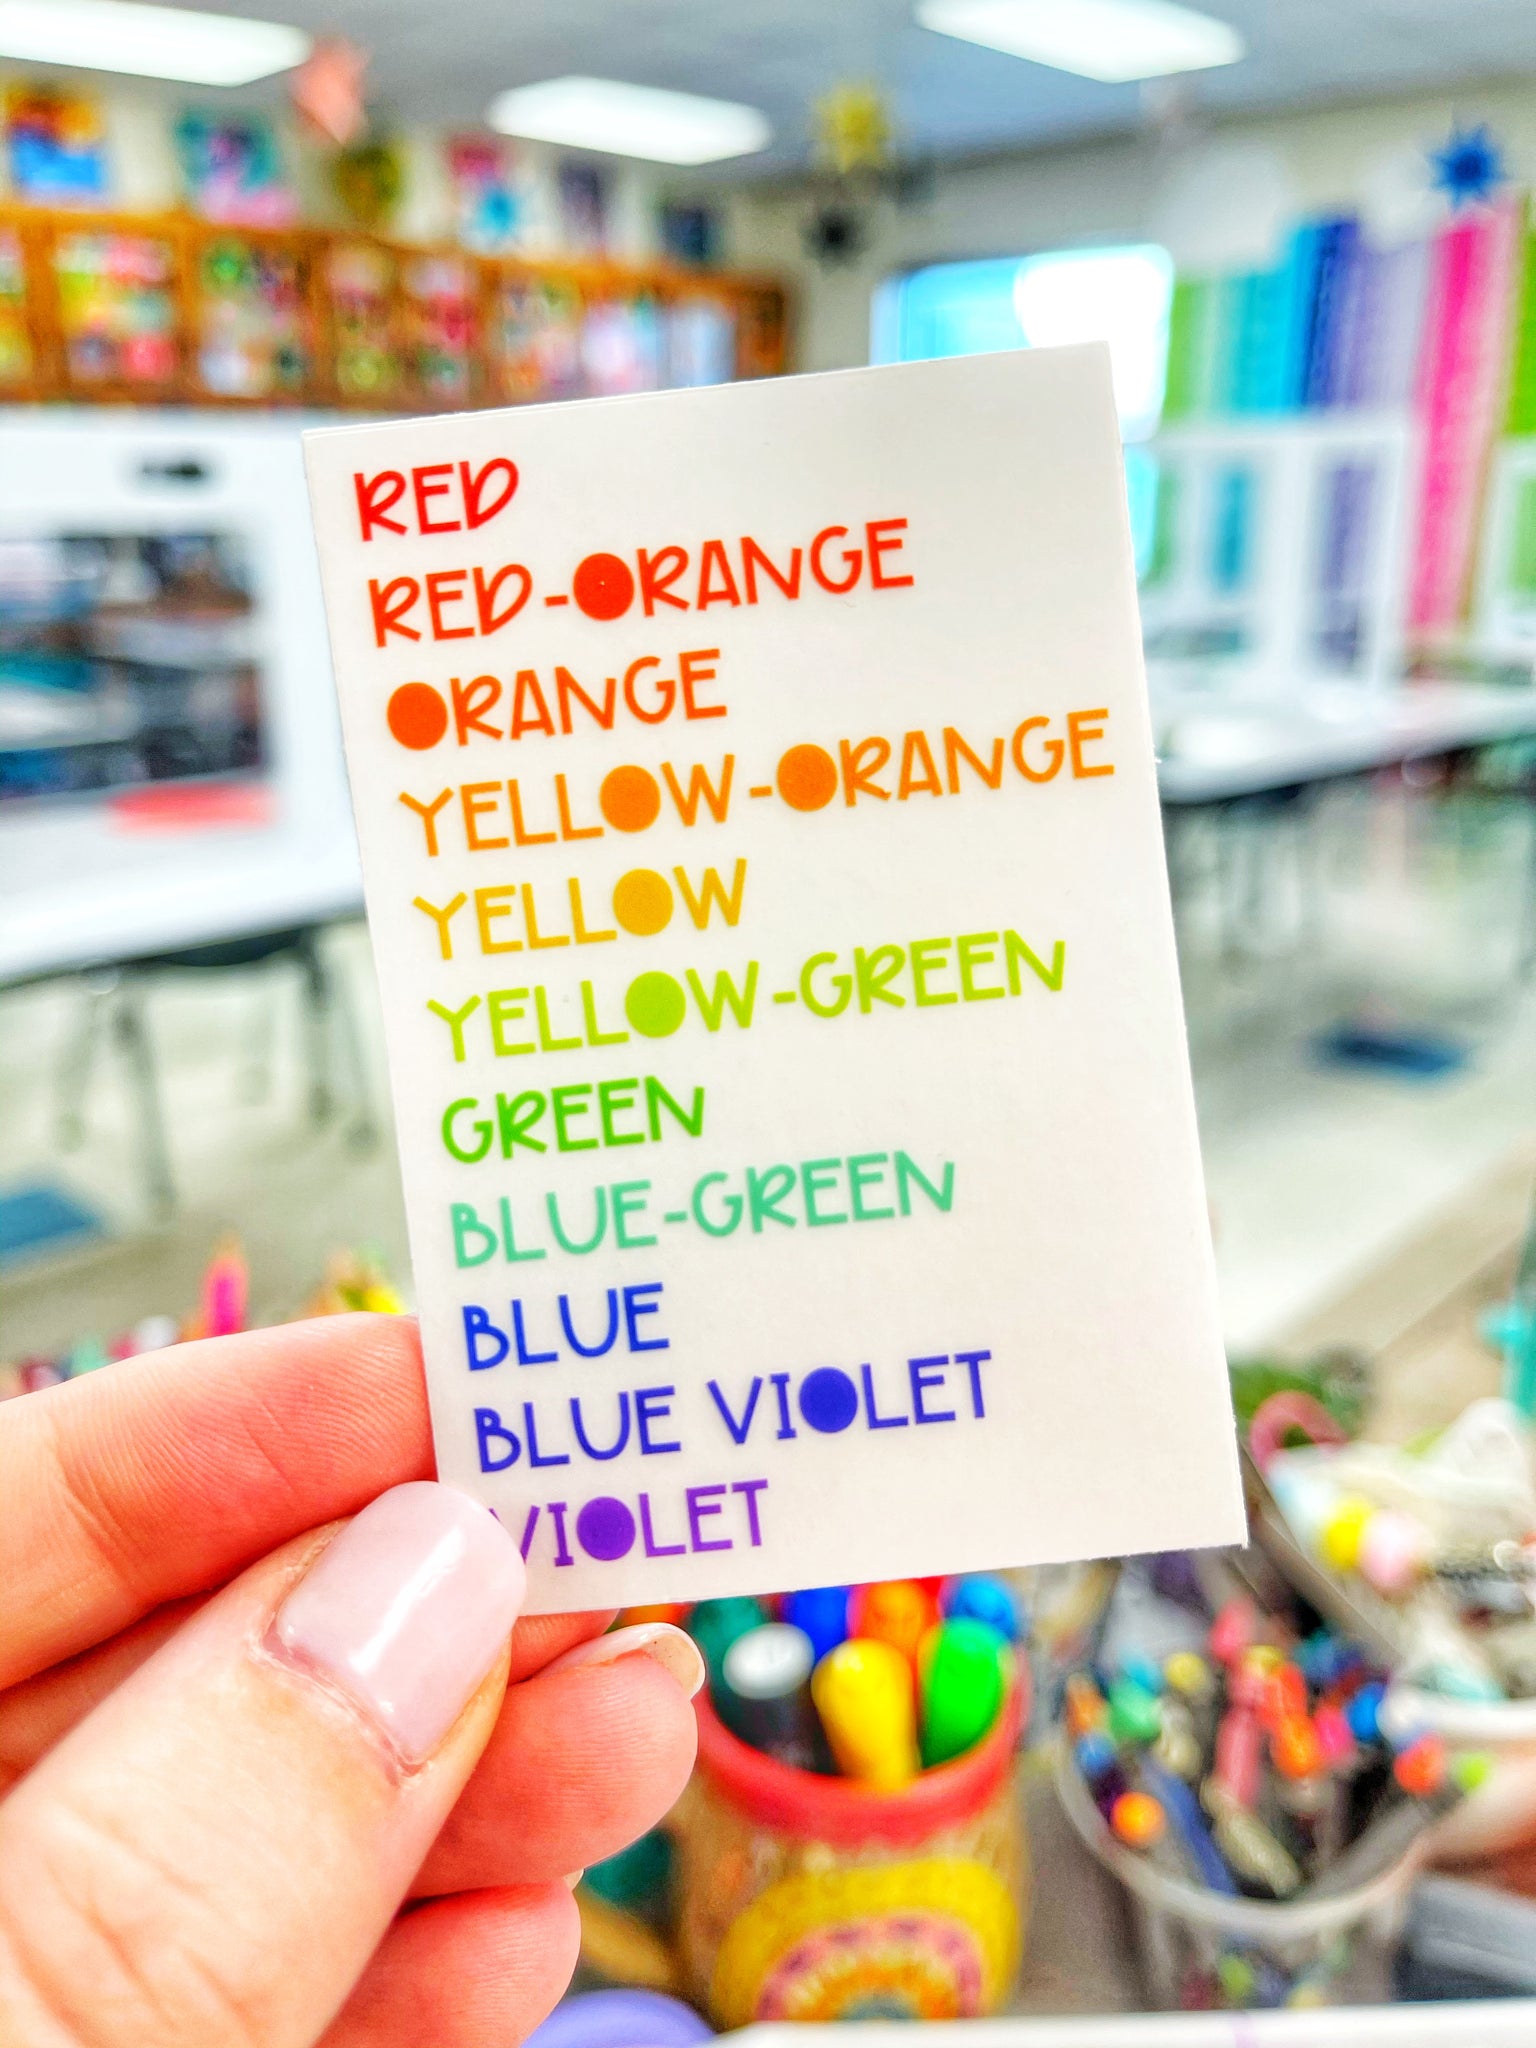 RED
RED-ORANGE
ORANGE
YELLOW-ORANGE
YELLOW
YELLOW-GREEN
GREEN
BLUE-GREEN
BLUE
BLUE VIOLET
VIOLET